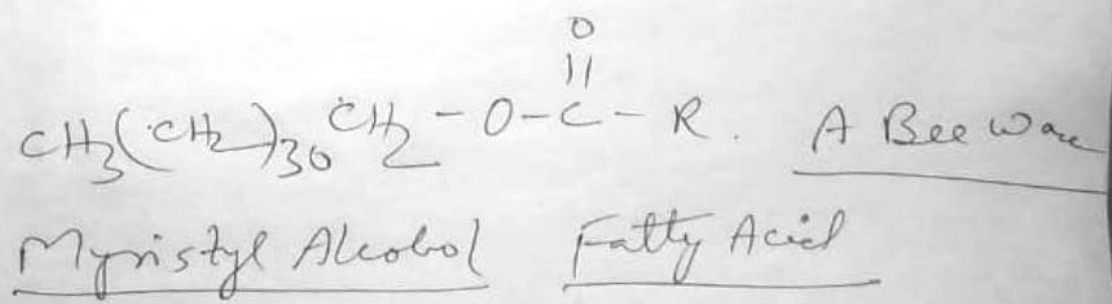 O
||
CH₃(CH₂)₃₀CH₂-O-C-R. A Bee Wax
Myristyl Alcohol Fatty Acid